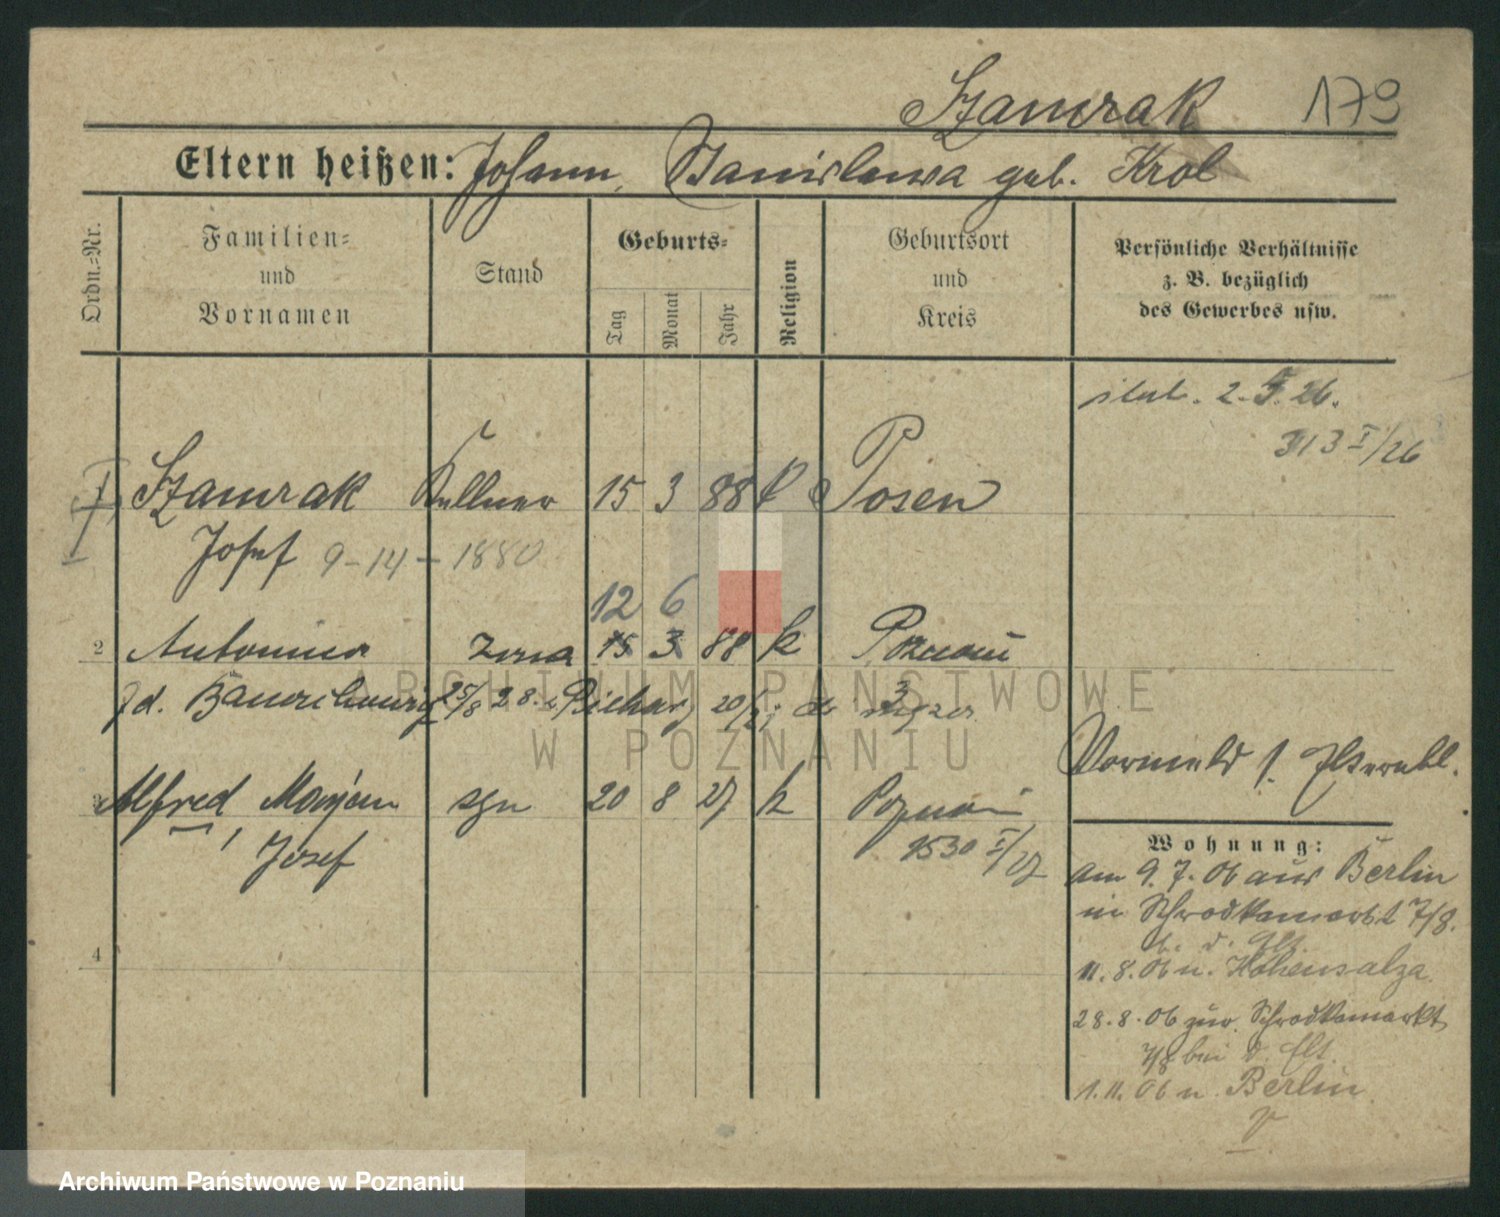 Szamrak 179
Eltern heißen: Johann, Stanislawa geb. Krol
Ordn.-Nr.
Familien- und Vornamen
Stand
Geburts-
Tag
Monat
Jahr
Religion
Geburtsort und Kreis
Persönliche Verhältnisse
z. B. bezüglich
des Gewerbes usw.
2. 5. 26.
313 I/26
Szamrak Kellner 15 3 88 k Posen
Josef 9-14-1880
12 6
2 Antonina żona 15 3 88 k Poznań
25/8 28.
ARCHIWUM PAŃSTWOWE
W POZNANIU
Vormeld
3 Alfred Marjan syn 20 8 27 k Poznań
Josef
1530 I/27
Wohnung:
am 9. 7. 06 aus Berlin
in Schrodkamarkt 7/8.
b. d. Elt.
4
11. 8. 06 n. Hohensalza
28. 8. 06 zur. Schrodkamarkt
7/8 bei d. Elt.
1. 11. 06 n. Berlin
Archiwum Państwowe w Poznaniu